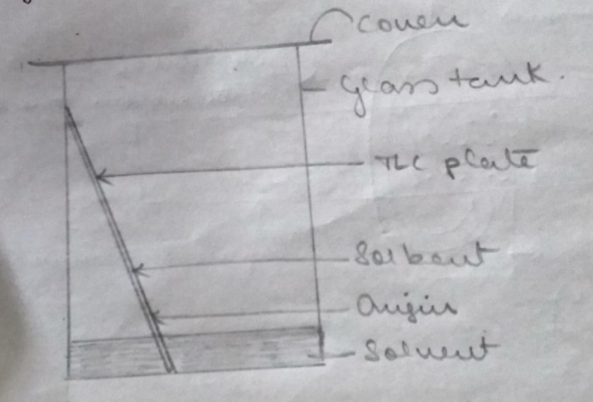 cover
glass tank.
TLC plate
Sorbent
Origin
Solvent